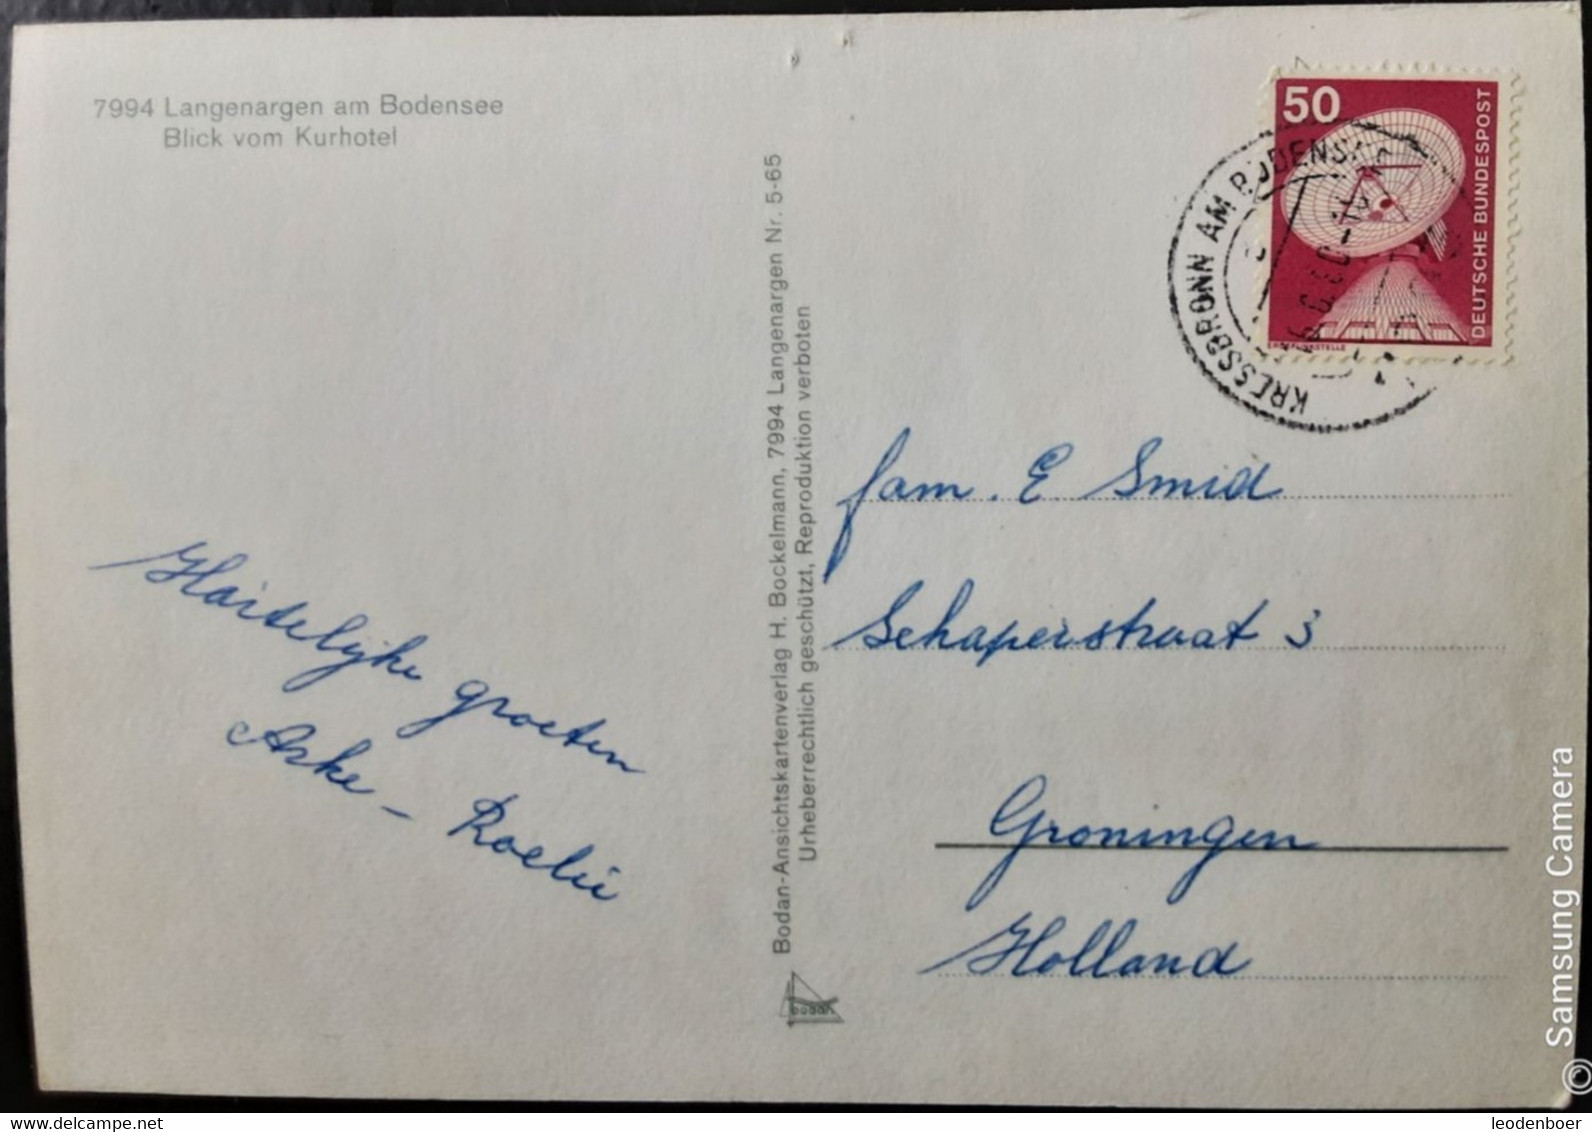 7994 Langenargen am Bodensee
Blick vom Kurhotel
Hartelijke groeten
Aske - Roelie
Bodan-Ansichtskartenverlag H. Bockelmann, 7994 Langenargen Nr. 5-65
Urheberrechtlich geschützt, Reproduktion verboten
bodan
50
DEUTSCHE BUNDESPOST
ERDFUNKSTELLE
KRESSBRONN AM BODENSEE
fam. E Smid
Schaperstraat 3
Groningen
Holland
© Samsung Camera
leodenboer